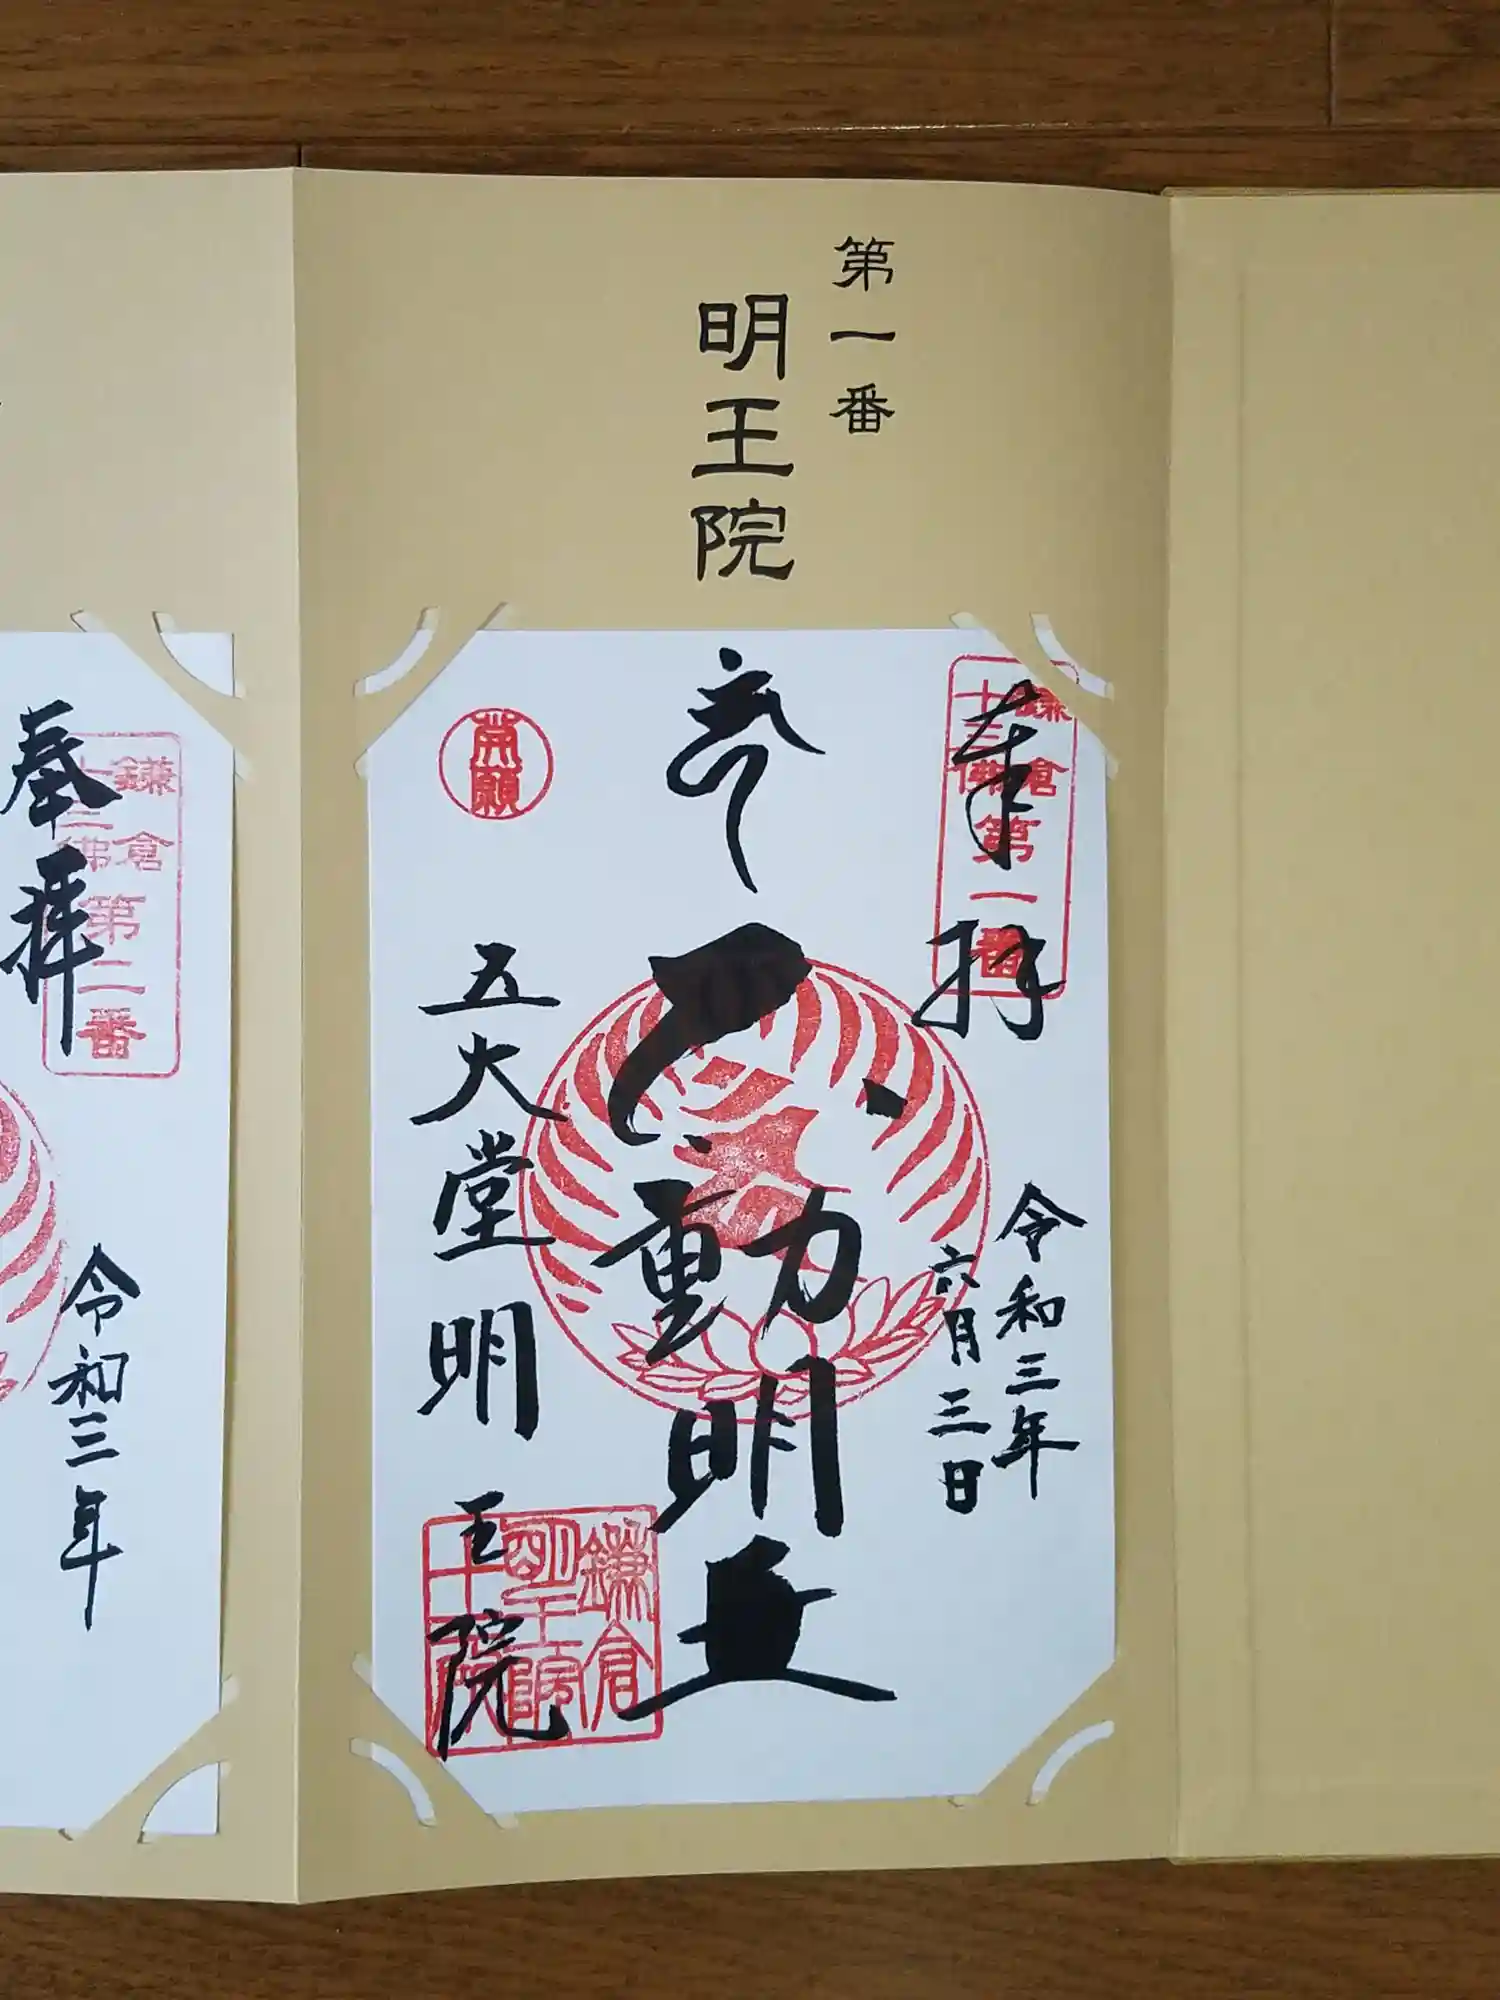 第一番
明王院
奉拝
鎌倉
十三佛
第一番
令和三年
六月三日
不動明王
五大堂
明王院
鎌倉
明王院
奉拝
鎌倉
十三佛
第二番
令和三年